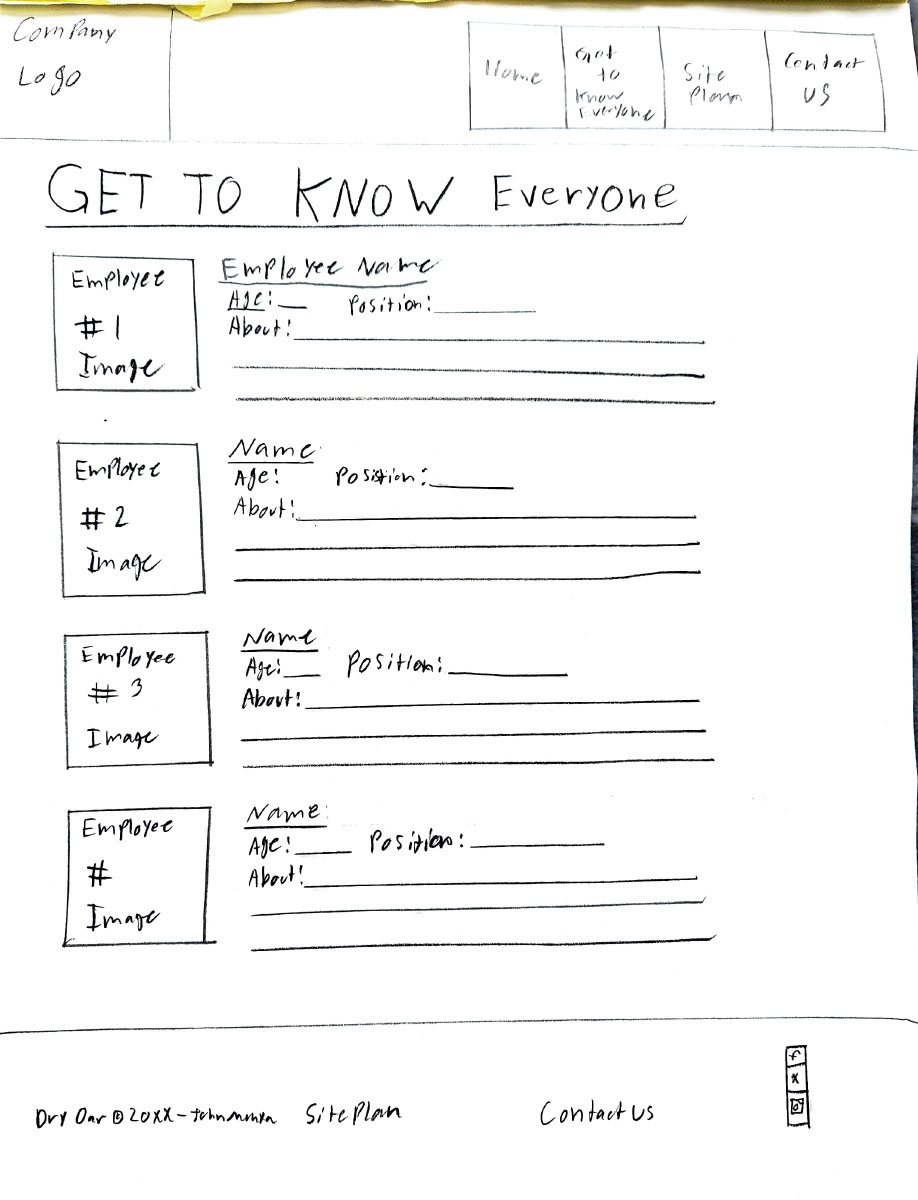 Company
Logo
Home
Get
to
Know
Everyone
Site
Plan
Contact
US
GET TO KNOW Everyone
Employee
#1
Image
Employee Name
Age: Position:
About:
Employee
#2
Image
Name
Age: Position:
About:
Employee
#3
Image
Name
Age: Position:
About:
Employee
#
Image
Name
Age: Position:
About:
Dry Oar © 20XX - Site Plan Contact Us
f
X